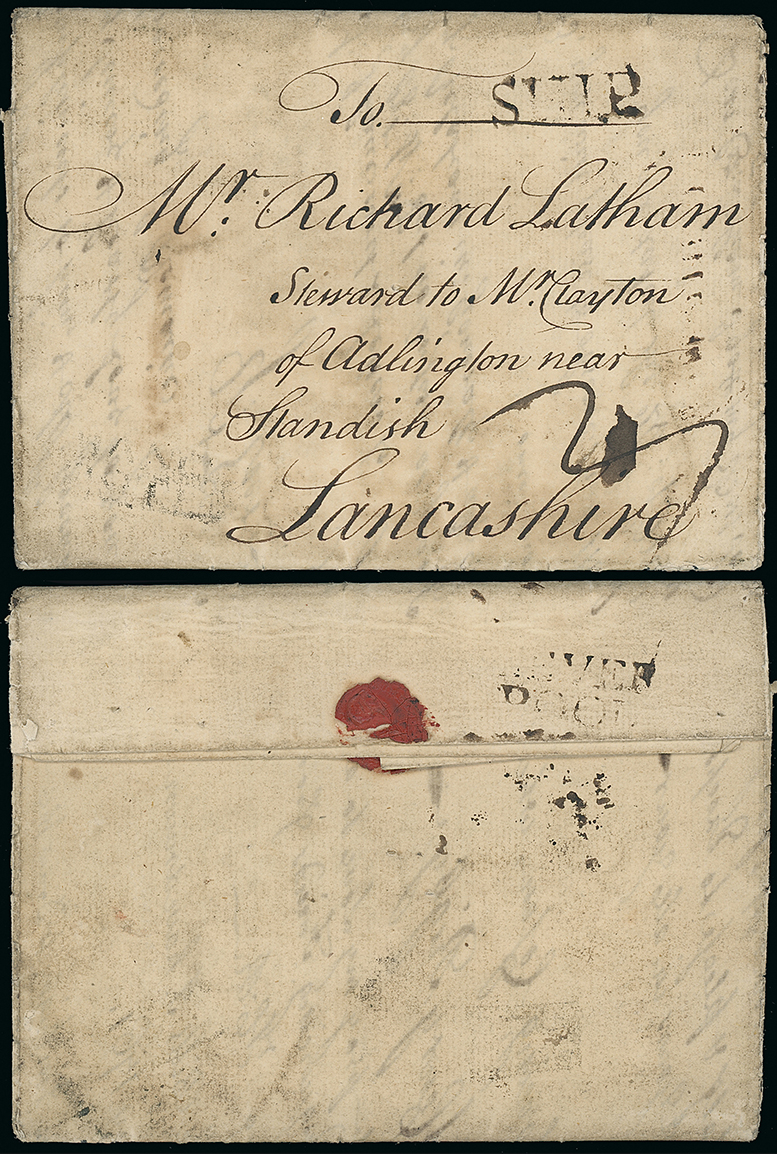 To. SHIP
Mr. Richard Latham
Steward to Mr. Clayton
of Adlington near
Standish
Lancashire